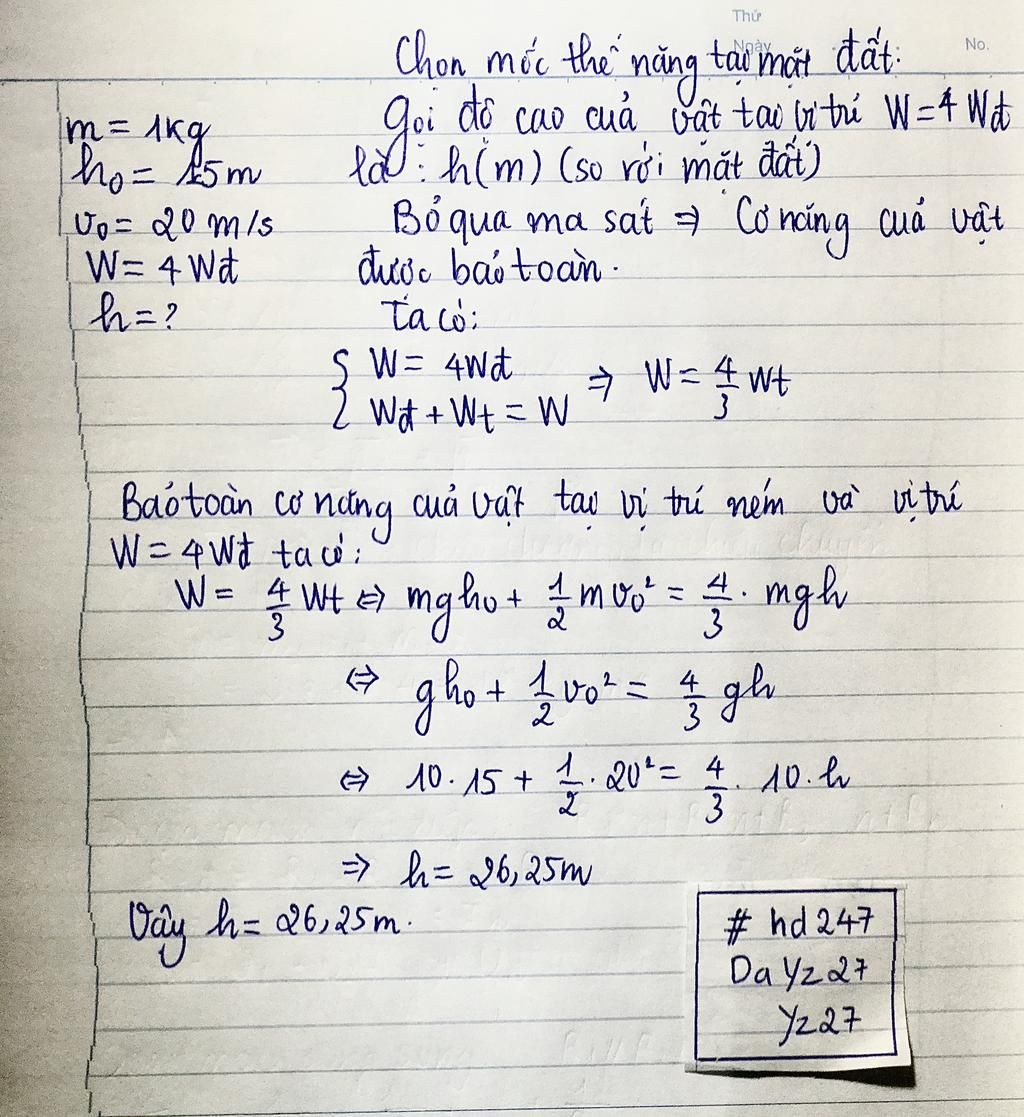 Thứ
Ngày
No.
Chọn mốc thế năng tại mặt đất.
m = 1kg
h₀ = 15m
v₀ = 20 m/s
W = 4 Wđ
h = ?
Gọi độ cao của vật tại vị trí W = 4 Wđ
là : h(m) (so với mặt đất)
Bỏ qua ma sát ⇒ Cơ năng của vật
được bảo toàn.
Ta có:
{ W = 4Wđ
Wđ + Wt = W ⇒ W = 4/3 Wt
Bảo toàn cơ năng của vật tại vị trí ném và vị trí
W = 4Wđ ta có:
W = 4/3 Wt ⇔ mgh₀ + 1/2 mv₀² = 4/3 . mgh
⇔ gh₀ + 1/2 v₀² = 4/3 gh
⇔ 10.15 + 1/2 . 20² = 4/3 . 10.h
⇒ h = 26,25m
Vậy h = 26,25m.
# hd247
Da Yz27
Yz27